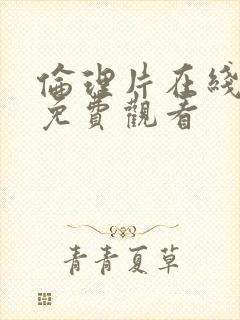 倫理片在綫
免費觀看
青青夏草